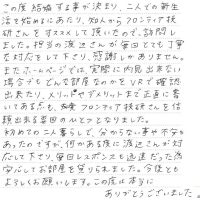 この度結婚する事が決まり、二人での新生
活を始めるにあたり、知人からフロンティア技
研さんをススメして頂いたので、訪問し
ました。担当の渡辺さんが毎回とても丁寧
な対応をして下さり、感謝しかありません。
またホームページでは、実際に内見出来ない
場合でもどんな部屋なのかをVRで確認
出来たり、メリットやデメリットまで正直に書
いてある点も、フロンティア技研さんを信
頼出来る要因のひとつとなりました。
初めての二人暮らしで、分からない事や不安も
あったのですが、何かある度に渡辺さんが対
応して下さり、毎回レスポンスも迅速だった為
安心してお部屋を借りれました。今後とも
よろしくお願いします。この度は本当に
ありがとうございました。